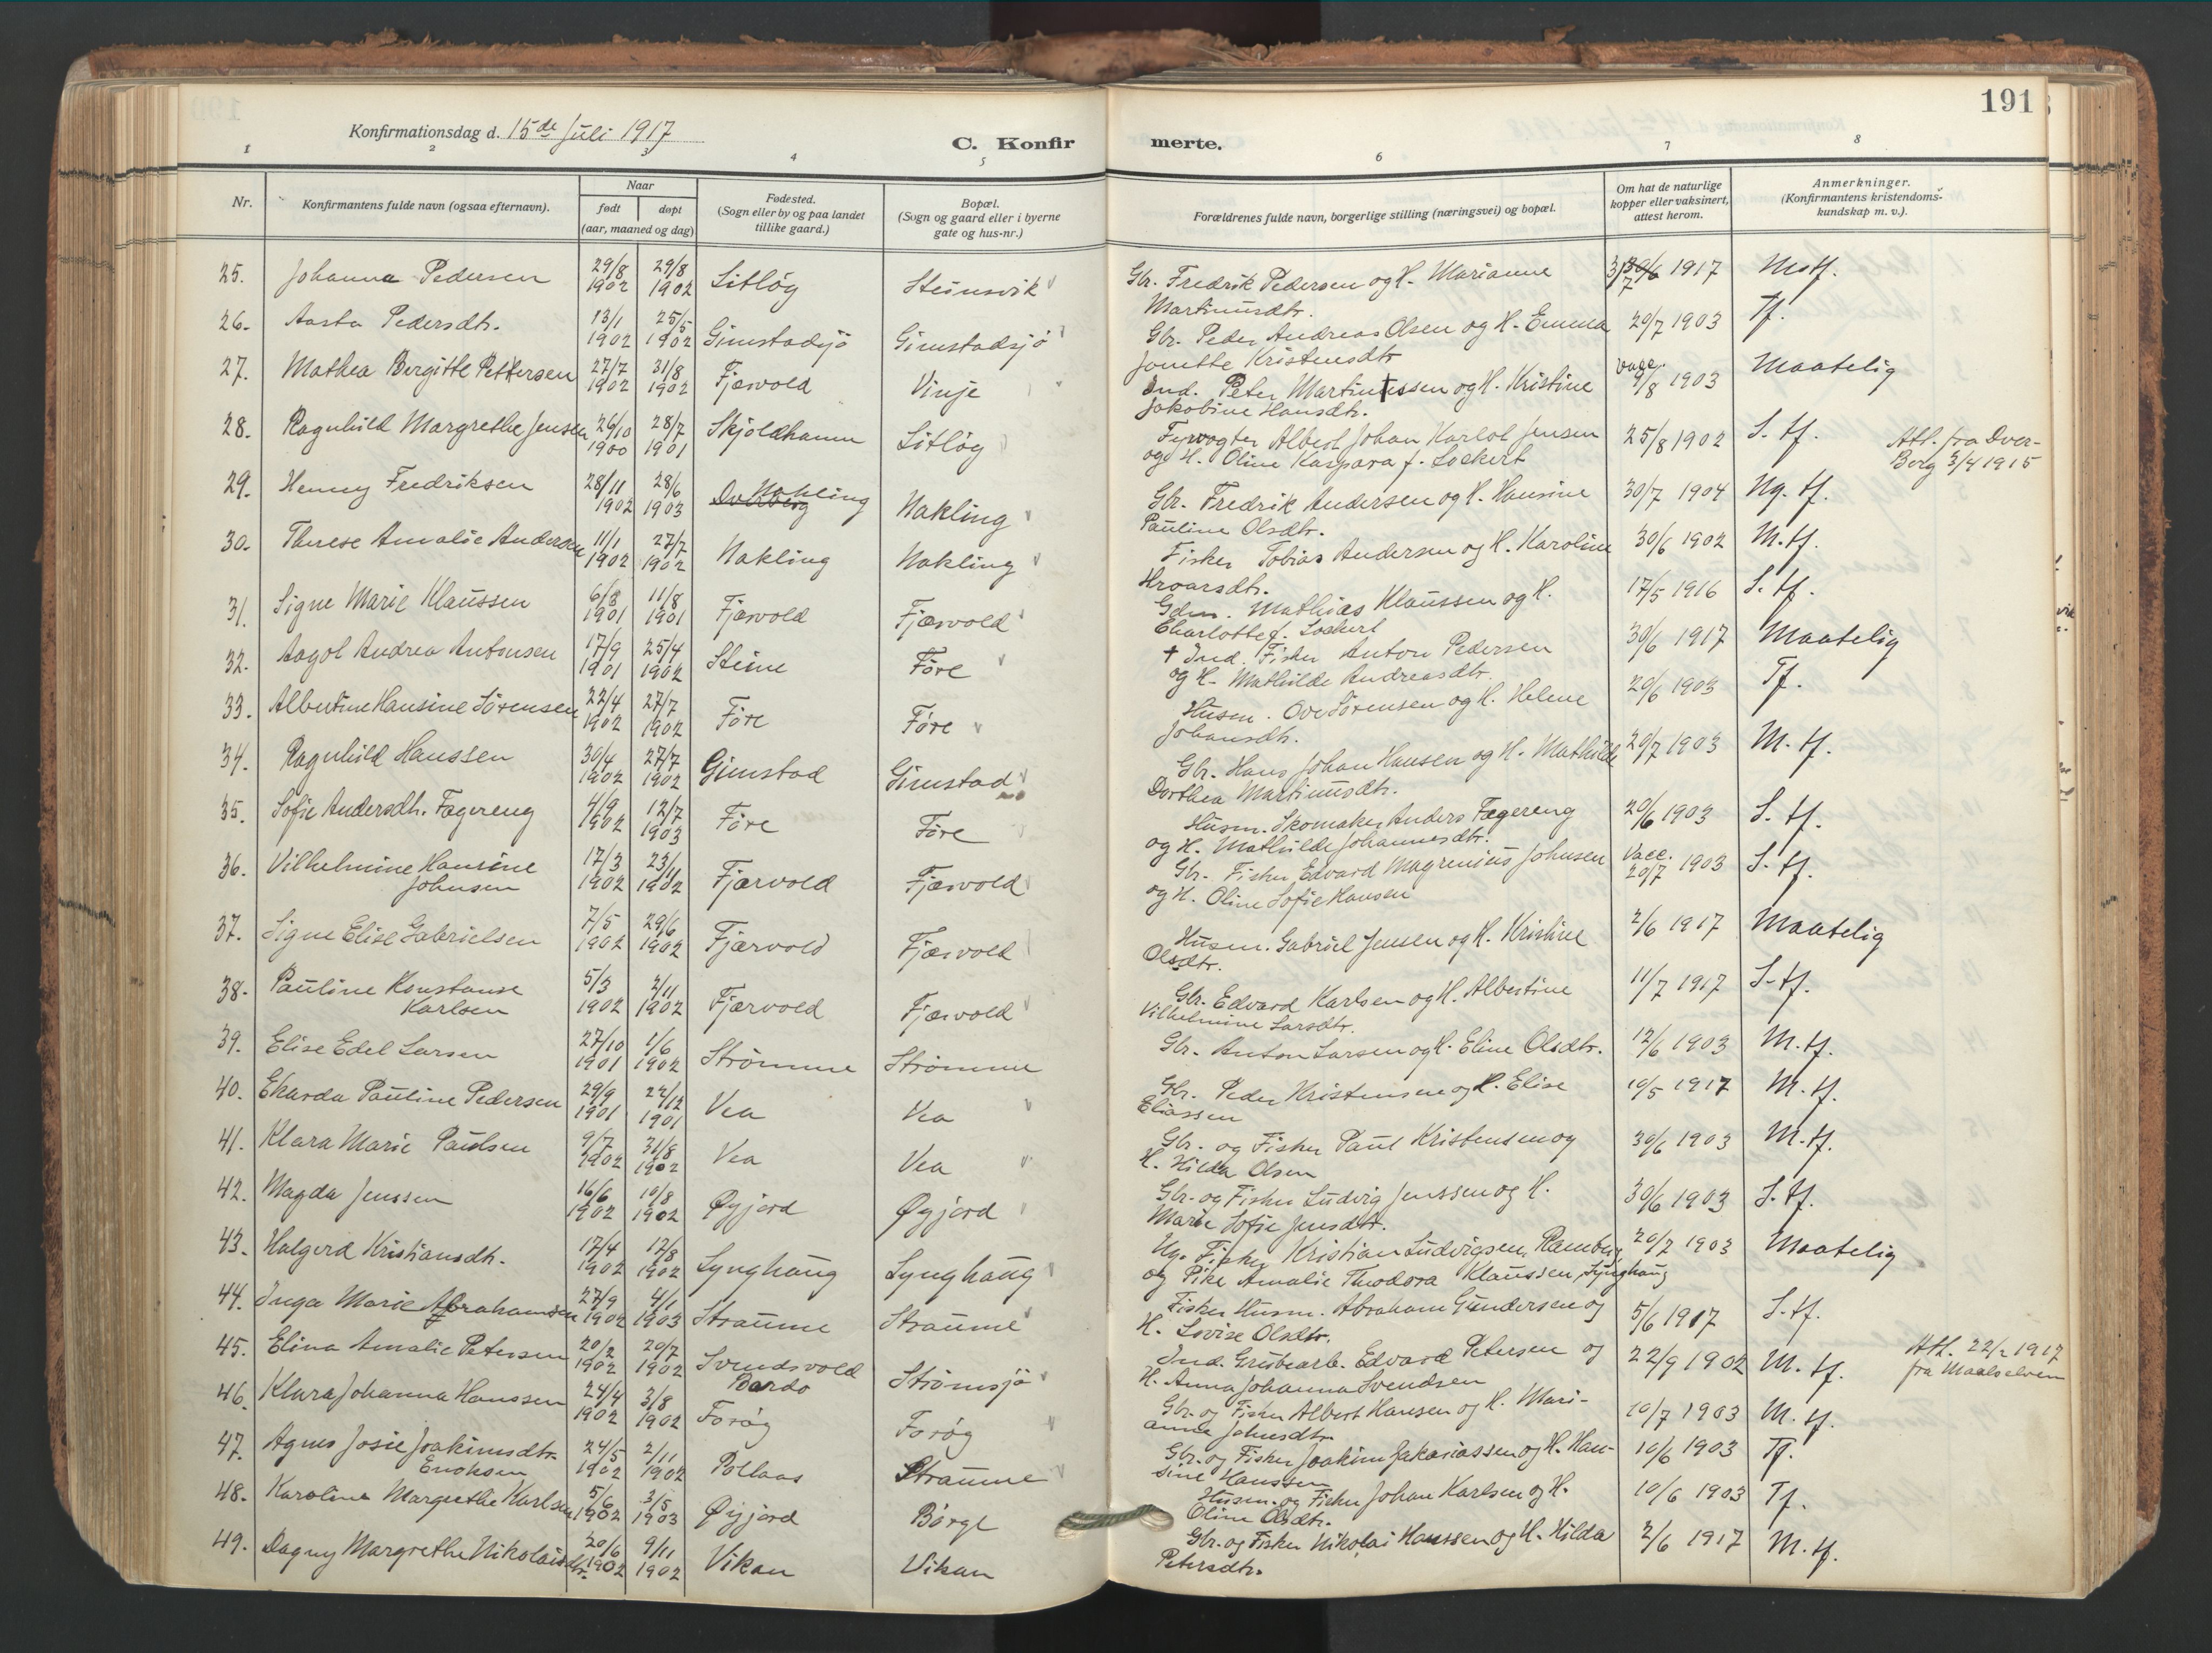 191
Konfirmationsdag d. 15de Juli 1917
C. Konfirmerte.
1 2 3 4 5 6 7 8
Nr.
Konfirmantens fulde navn (ogsaa efternavn).
Naar
født døpt
(aar, maaned og dag)
Fødested.
(Sogn eller by og paa landet
tillike gaard.)
Bopæl.
(Sogn og gaard eller i byerne
gate og hus-nr.)
Forældrenes fulde navn, borgerlige stilling (næringsvei) og bopæl.
Om hat de naturlige
kopper eller vaksinert,
attest herom.
Anmerkninger.
(Konfirmantens kristendoms-
kundskap m. v.).
25. Johanna Pedersen 29/8 1902 29/8 1902 Litløy Steinsvik Gbr. Fredrik Pedersen og H. Marianne 1917 Mstf.
Martinusdtr.
26. Aasta Pedersdtr. 13/1 1902 25/5 1902 Gimstadsjö Gimstadsjö Gbr. Peder Andreas Olsen og H. Emma 20/7 1903 Tf.
Jonette Kristensdtr
27. Mathea Bergitte Pettersen 27/7 1902 31/8 1902 Fjærvold Vinje Ind. Peter Martinussen og H. Kristine vacc. 9/8 1903 Maatelig
Jakobine Hansdtr.
28. Ragnhild Margrethe Jensen 26/10 1900 28/7 1901 Skjoldhamn Litløy Fyrvogter Albert Johan Karlot Jensen 25/8 1902 S. tf. Att. fra Dver-
og H. Oline Kaspara f. Lockert Berg 3/4 1915
29. Henny Fredriksen 28/11 1902 28/6 1903 Dverberg Nakling Nakling Gbr. Fredrik Andersen og H. Hansine 30/7 1904 Ng. tf.
Pauline Olsdtr.
30. Therese Amalie Andersen 11/1 1902 27/7 1902 Nakling Nakling Fisker Tobias Andersen og H. Karoline 30/6 1902 M. tf.
Hroarsdtr.
31. Signe Marie Klaussen 6/3 1901 11/8 1901 Fjærvold Fjærvold Gdm. Mathias Klaussen og H. 17/5 1916 S. tf.
Charlotte f. Lockert
32. Aagot Andrea Antonsen 17/9 1901 25/4 1902 Steine Føre + Ind. Fisker Anton Pedersen 30/6 1917 Maatelig
og H. Mathilde Andreasdtr.
33. Albertine Hansine Sørensen 22/4 1902 27/7 1902 Føre Føre Husm. Ove Sørensen og H. Helene 20/6 1903 Tf.
Johansdtr.
34. Ragnhild Hanssen 30/4 1902 27/7 1902 Gimstad Gimstad Gbr. Hans Johan Hansen og H. Mathilde 20/7 1903 M. tf.
Dorthea Martinusdtr.
35. Sofie Andersdtr. Fagereng 4/9 1902 12/7 1903 Føre Føre Husm. Skomaker Anders Fagereng 20/6 1903 S. tf.
og H. Mathilde Johannesdtr.
36. Vilhelmine Hansine 17/3 1902 23/11 1902 Fjærvold Fjærvold Gbr. Fisker Edvard Magrenius Johnsen Vacc. 20/7 1903 S. tf.
Johnsen og H. Oline Sofie Hansen
37. Signe Elise Gabrielsen 7/5 1902 29/6 1902 Fjærvold Fjærvold Husm. Gabriel Jensen og H. Kristine 2/6 1917 Maatelig
Olsdtr.
38. Pauline Konstanse 5/3 1902 2/11 1902 Fjærvold Fjærvold Gbr. Edvard Karlsen og H. Albertine 11/7 1917 S. tf.
Karlsen Vilhelmine Larsdtr.
39. Elise Edel Larsen 27/10 1901 1/6 1902 Strömme Strömme Gbr. Anton Larsen og H. Eline Olsdtr. 12/6 1903 M. tf.
40. Ekarda Pauline Pedersen 29/9 1901 22/12 1901 Vea Vea Gbr. Peder Kristensen og H. Elise 10/5 1917 M. tf.
Eliassen
41. Klara Marie Paulsen 9/7 1902 31/8 1902 Vea Vea Gbr. og Fisker Paul Kristensen og 30/6 1903 M. tf.
H. Hilda Olsen
42. Magda Jenssen 16/6 1902 10/8 1902 Øyjord Øyjord Gbr. og Fisker Ludvig Jenssen og H. 30/6 1903 S. tf.
Marie Sofie Jensdtr.
43. Halgerd Kristiansdtr. 17/4 1902 17/8 1902 Lynghaug Lynghaug Ug. Fisker Kristian Ludvigsen, Ramberg 20/7 1903 Maatelig
og Pike Amalie Theodora Klaussen, Lynghaug
44. Inga Marie Abrahamsen 27/9 1902 4/1 1903 Straume Straume Fisker Husm. Abraham Gundersen og 5/6 1917 S. tf.
H. Lovise Olsdtr.
45. Elina Amalie Petersen 20/2 1902 20/7 1902 Svendsvold Bardo Strömsjö Ind. Grubearb. Edvard Petersen og 22/9 1902 M. tf. Att. 22/2 1917
H. Anna Johanna Svendsen fra Maalselven
46. Klara Johanna Hanssen 24/4 1902 3/8 1902 Forøy Forøy Gbr. og Fisker Albert Hansen og H. Mari- 10/7 1903 M. tf.
anna Johnsdtr.
47. Agnes Josie Joakimsdtr. 24/5 1902 2/11 1902 Pollaas Straume Gbr. og Fisker Joakim Jakariassen og H. Han- 10/6 1903 Tf.
Enoksen sine Hanssen
48. Karoline Margrethe Karlsen 5/6 1902 3/5 1903 Øyjord Börge Husm. og Fisker Johan Karlsen og H. 10/6 1903 Tf.
Oline Olsdtr.
49. Dagny Margrethe Nikolaisdtr. 20/6 1902 9/11 1902 Vikan Vikan Gbr. og Fisker Nikolai Hanssen og H. Hilda 2/6 1917 M. tf.
Petersdtr.